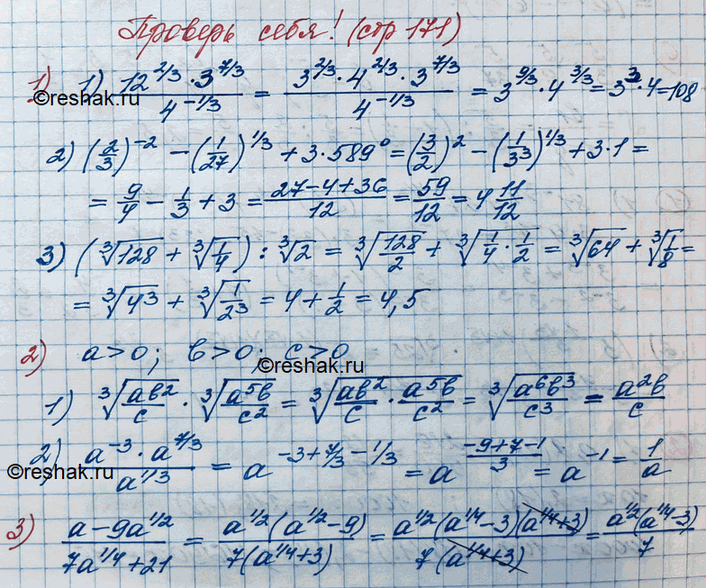 Проверь себя! (стр 171)
1) 1) 12^{2/3} · 3^{7/3} / 4^{-1/3} = 3^{2/3} · 4^{2/3} · 3^{7/3} / 4^{-1/3} = 3^{9/3} · 4^{3/3} = 3^3 · 4 = 108
©reshak.ru
2) (2/3)^{-2} - (1/27)^{1/3} + 3 · 589^0 = (3/2)^2 - (1/3^3)^{1/3} + 3 · 1 =
= 9/4 - 1/3 + 3 = (27 - 4 + 36)/12 = 59/12 = 4 11/12
3) (∛128 + ∛(1/4)) : ∛2 = ∛(128/2) + ∛(1/4 · 1/2) = ∛64 + ∛(1/8) =
= ∛(4^3) + ∛(1/2^3) = 4 + 1/2 = 4,5
2) a > 0; b > 0; c > 0
©reshak.ru
1) ∛(ab^2/c) · ∛(a^5b/c^2) = ∛(ab^2/c · a^5b/c^2) = ∛(a^6b^3/c^3) = a^2b/c
2) a^{-3} · a^{7/3} / a^{1/3} = a^{-3 + 7/3 - 1/3} = a^{(-9+7-1)/3} = a^{-1} = 1/a
©reshak.ru
3) (a - 9a^{1/2})/(7a^{1/4} + 21) = a^{1/2}(a^{1/2} - 9)/(7(a^{1/4} + 3)) = a^{1/2}(a^{1/4} - 3)(a^{1/4} + 3)/(7(a^{1/4} + 3)) = a^{1/2}(a^{1/4} - 3)/7